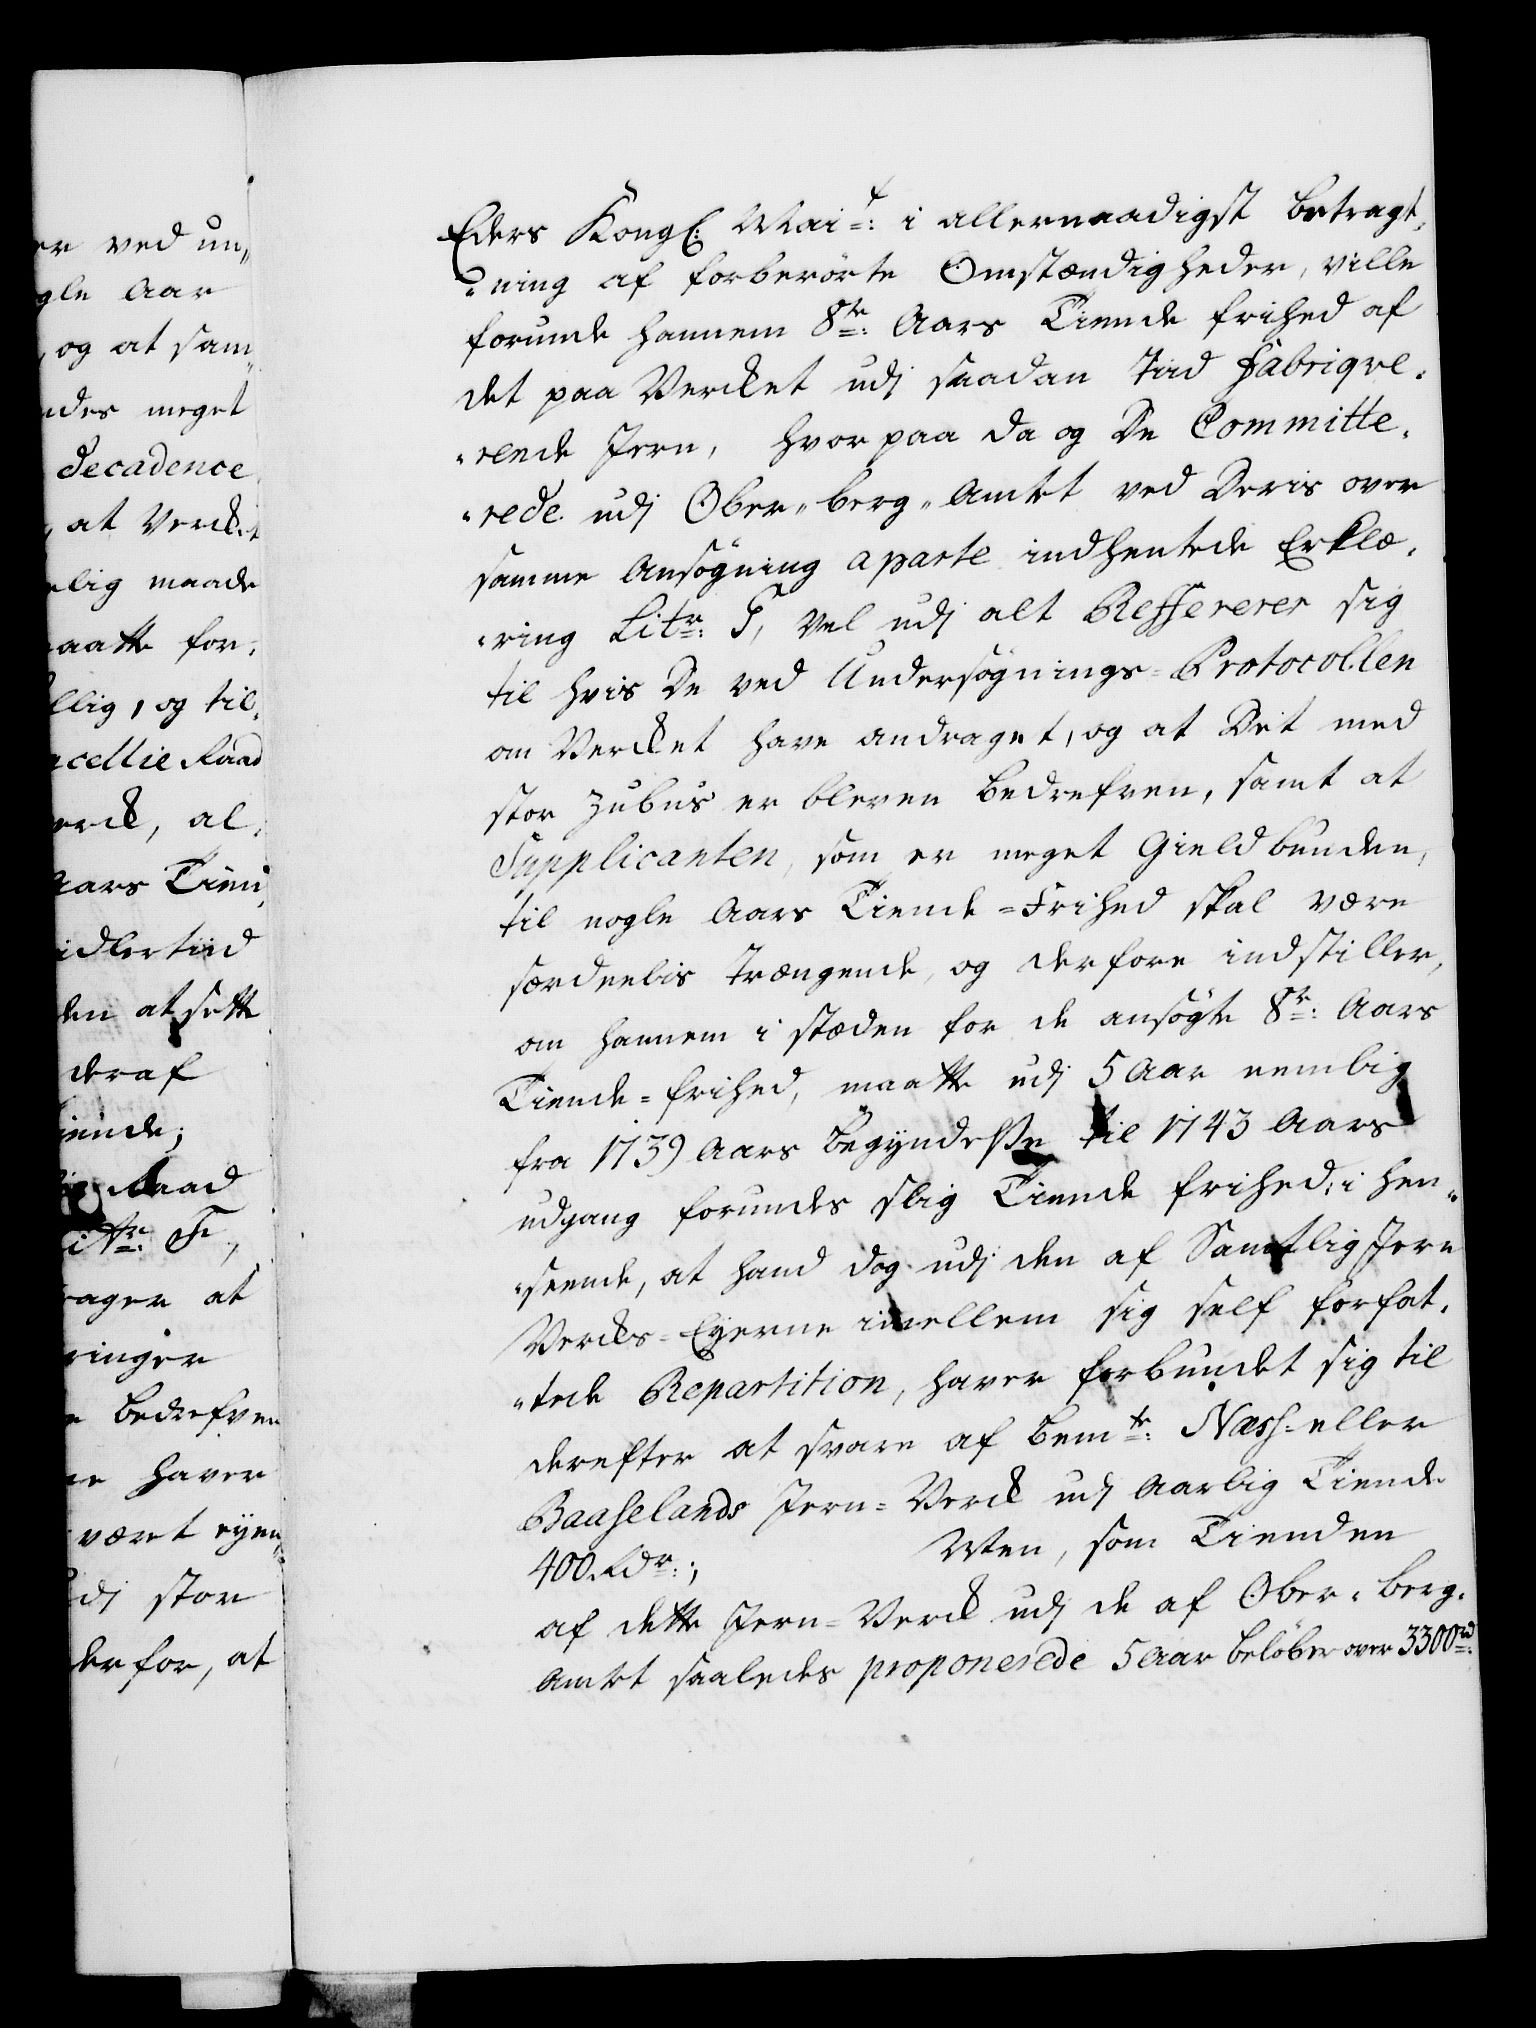 er ved un„
gle Aar
, og at sam„
ndes meget
decadence
, at Verket
elig maade
aatte for„
llig, og til„
cellie Raad
erck, al„
Aars Tien„
idlertiid
den at sette
deraf
iende;
Raad
Litr: F,
rager at
ringer
e bedrefven
ne haver
været eyen„
udj stor
derfor, at
Eders Kongl: Mait: i allernaadigst betragt„
„ning af forberörte Omstændigheder, ville
forunde hannem 8te: Aars Tiende frihed af
det paa Verket udj saadan Tiid Fabriqve„
„rende Jern, hvorpaa da og De Committe„
„rede udj Ober„berg„Amtet ved Deris over
samme Ansögning aparte indhentede Erklæ„
„ring Litr: G, vel udj alt Reffererer sig
til hvis De ved Undersögnings=Protocollen
om Verket have andraget, og at Det med
stor Zubus er bleven bedrefven, samt at
Supplicanten, som er meget Gieldbunden,
til nogle Aars Tiende=Frihed skal være
særdeelis trængende, og derfore indstiller,
om hannem i stæden for de ansögte 8te: Aars
Tiende=frihed, maatte udj 5 Aar nemlig
fra 1739 Aars begyndelse til 1743 Aars
udgang forundes slig Tiende frihed; i hen„
„seende, at hand dog udj den af Samtlig Jern
Vercks=Eyerne imellem sig self forfat„
„tede Repartition, haver forbundet sig til
derefter at svare af bemte: Næss=eller
Baaselands Jern=Verck udj Aarlig Tiende
400 Rdr:; Men, som Tienden
af dette Jern=Verck udj de af Ober„berg„
Amtet saaledes proponerede 5 Aar belöber over 3300rd: